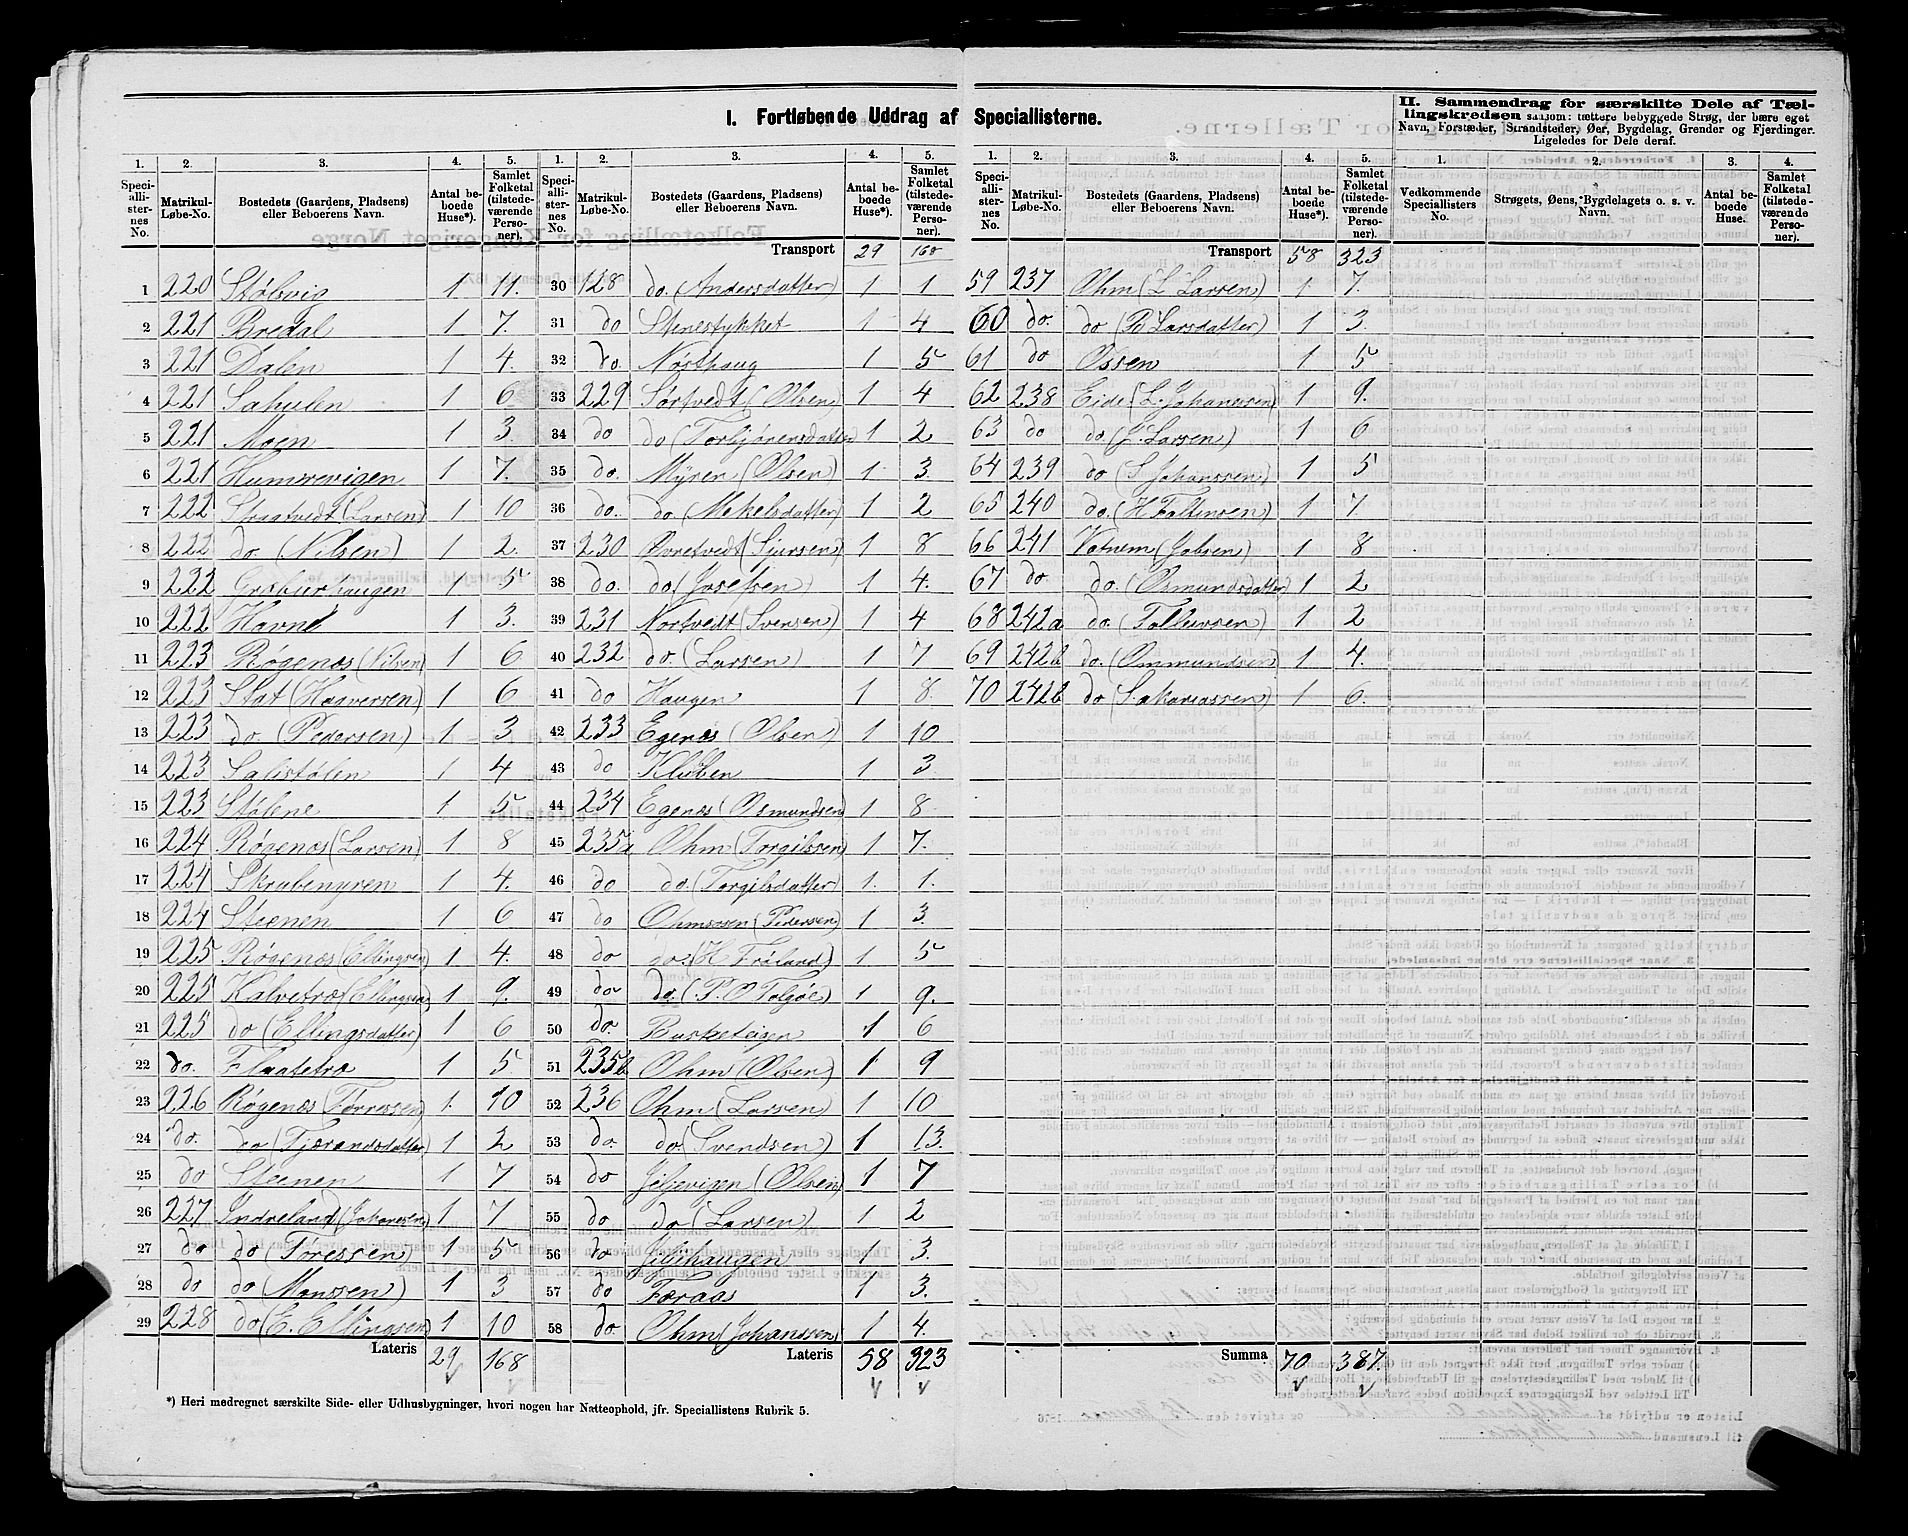 I. Fortløbende Uddrag af Speciallisterne.
II. Sammendrag for særskilte Dele af Tæl-
lingskredsen saasom: tættere bebyggede Strøg, der bære eget
Navn, Forstæder, Strandsteder, Øer, Bygdelag, Grender og Fjerdinger.
Ligeledes for Dele deraf.
1. 2. 3. 4. 5. 1. 2. 3. 4. 5. 1. 2. 3. 4. 5. 1. 2. 3. 4.
Speciallisternes No. Matrikul-Løbe-No. Bostedets (Gaardens, Pladsens) eller Beboerens Navn. Antal beboede Huse*). Samlet Folketal (tilstedeværende Personer).
Speciallisternes No. Matrikul-Løbe-No. Bostedets (Gaardens, Pladsens) eller Beboerens Navn. Antal beboede Huse*). Samlet Folketal (tilstedeværende Personer).
Speciallisternes No. Matrikul-Løbe-No. Bostedets (Gaardens, Pladsens) eller Beboerens Navn. Antal beboede Huse*). Samlet Folketal (tilstedeværende Personer).
Vedkommende Speciallisters No. Strøgets, Øens, Bygdelagets o. s. v. Navn. Antal beboede Huse. Samlet Folketal (tilstedeværende Personer).
1 220 Stølsvig 1 11.
2 221 Bredal 1 7.
3 221 Dalen 1 4.
4 221 1 6
5 221 Moen 1 3
6 221 Humrevigen 1 7.
7 222 Straatvedt (Larsen) 1 10
8 222 do. (Nilsen) 1 2.
9 222 1 5
10 222 Havne 1 3.
11 223 Røgenæs (Nilsen) 1 6
12 223 Stat (Haaversen) 1 6
13 223 do. (Pedersen) 1 3
14 223 Salistølen 1 4
15 223 Stølene 1 5
16 224 Røgenæs (Larsen) 1 8
17 224 Skrubemyren 1 4.
18 224 Steenen 1 6
19 225 Røgenæs (Ellingsen) 1 4.
20 225 Kalvetræ (Ellingsen) 1 9.
21 225 do (Ellingsdatter) 1 6
22 do. Flaatetræ 1 5
23 226 Røgenæs (Tørresen) 1. 10
24 do. do (Tjerandsdatter) 1 2
25 do Steenen 1 7
26 227 Indreland (Johansen) 1 7
27 do do (Tøressen) 1 5
28 do do (Monssen) 1 3
29 228 do (E. Ellingsen) 1 10
Lateris 29 168
Transport 29 168
30 128 do. (Andersdatter) 1 1
31 do Stenestykket 1 4
32 do. Nøsthaug 1 5
33 229 Sørtvedt (Olsen) 1 4
34 do do (Torbjørensdatter 1 2
35 do. Myren (Olsen) 1 3.
36 do. do. (Mekelsdatter) 1 2
37 230 Øvretvedt (Sjursen) 1 8
38 do. do (Josefsen) 1 4.
39 231 Nortvedt (Svensen) 1 4
40 232 do. (Larsen) 1 7
41 do Haugen 1 8.
42 233 Egenæs (Olsen) 1 10
43 do Kluben 1 3
44 234 Egenæs (Osmundsen) 1 8
45 235a Ohm (Torgilssen) 1 7.
46 do do. (Torgilsdatter) 1. 1.
47 do Ohmsosen (Pedersen) 1 3.
48 do do. (H Frøland) 1 5
49 do do. (P. O Folgøe) 1 9.
50 do. Busketeigen 1 6
51 235b Ohm (Olsen) 1 9
52 236 Ohm (Larsen) 1 10
53 do. do. (Svendsen) 1 13.
54 do Jiljevigen (Olsen) 1 7
55 do do (Larsen) 1 2
56 do Jiljehaugen 1 3.
57 do Færaas 1 3.
58 do. Ohm (Johanssen) 1 4.
Lateris 58 323
Transport 58 323
59 237 Ohm (L Larsen) 1 7.
60 do. do (P. Larsdatter) 1 3.
61 do Ossen 1 5
62 238 Eide (L. Johanssen) 1 9.
63 do do (J. Larsen) 1 6
64 239 do (S Johanssen) 1 5
65 240 do. (H Faltinsen) 1 7
66 241 Vatnem (Jobsen) 1 8
67 do do. (Osmundsdatter) 1 2
68 242a do. (Tollevsen) 1 2
69 242b do. (Ommundsen) 1 4.
70 242b do (Sakariassen) 1 6.
Summa 70. 387.
*) Heri medregnet særskilte Side- eller Udhusbygninger, hvori nogen har Natteophold, jfr. Speciallistens Rubrik 5.